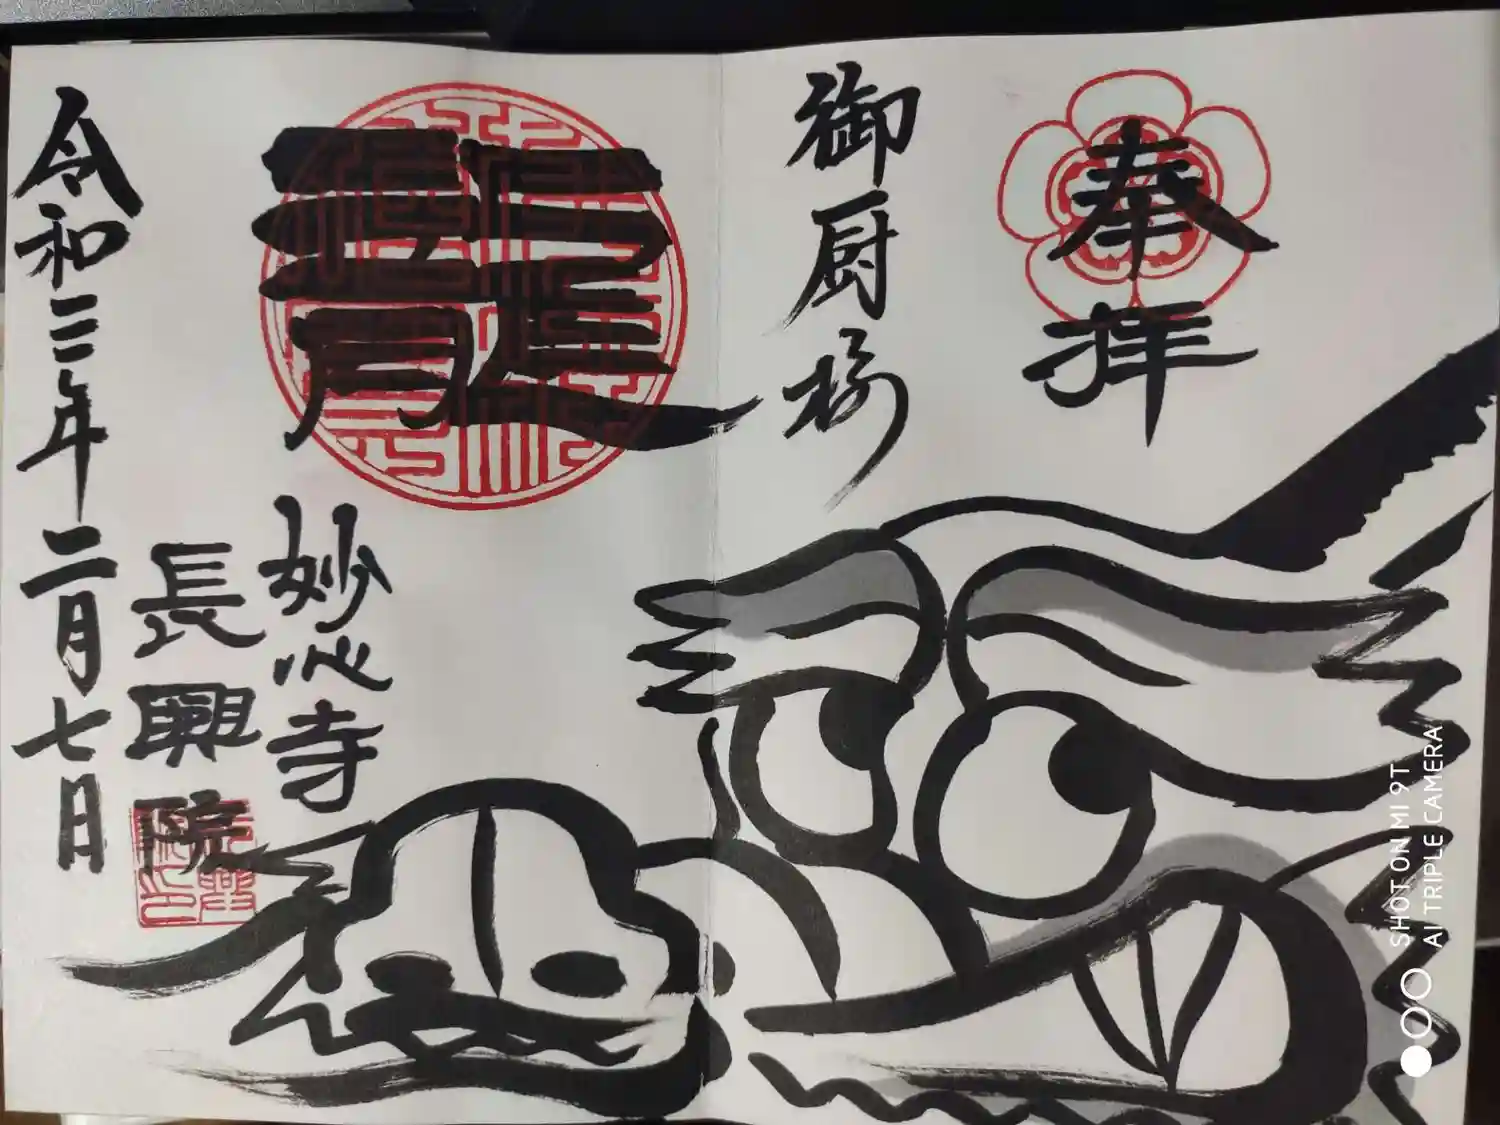 奉拝
御厨椋
龍
妙心寺
長興院
令和三年二月七日
SHOT ON MI 9T
AI TRIPLE CAMERA